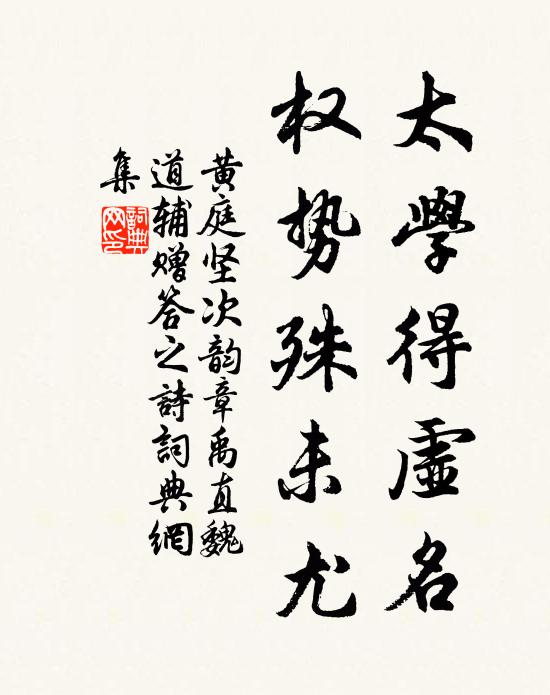 太學得虛名
权势殊未尤
黄庭坚次韵章禹直魏
道辅赠答之詩詞典網
集
詞典网印